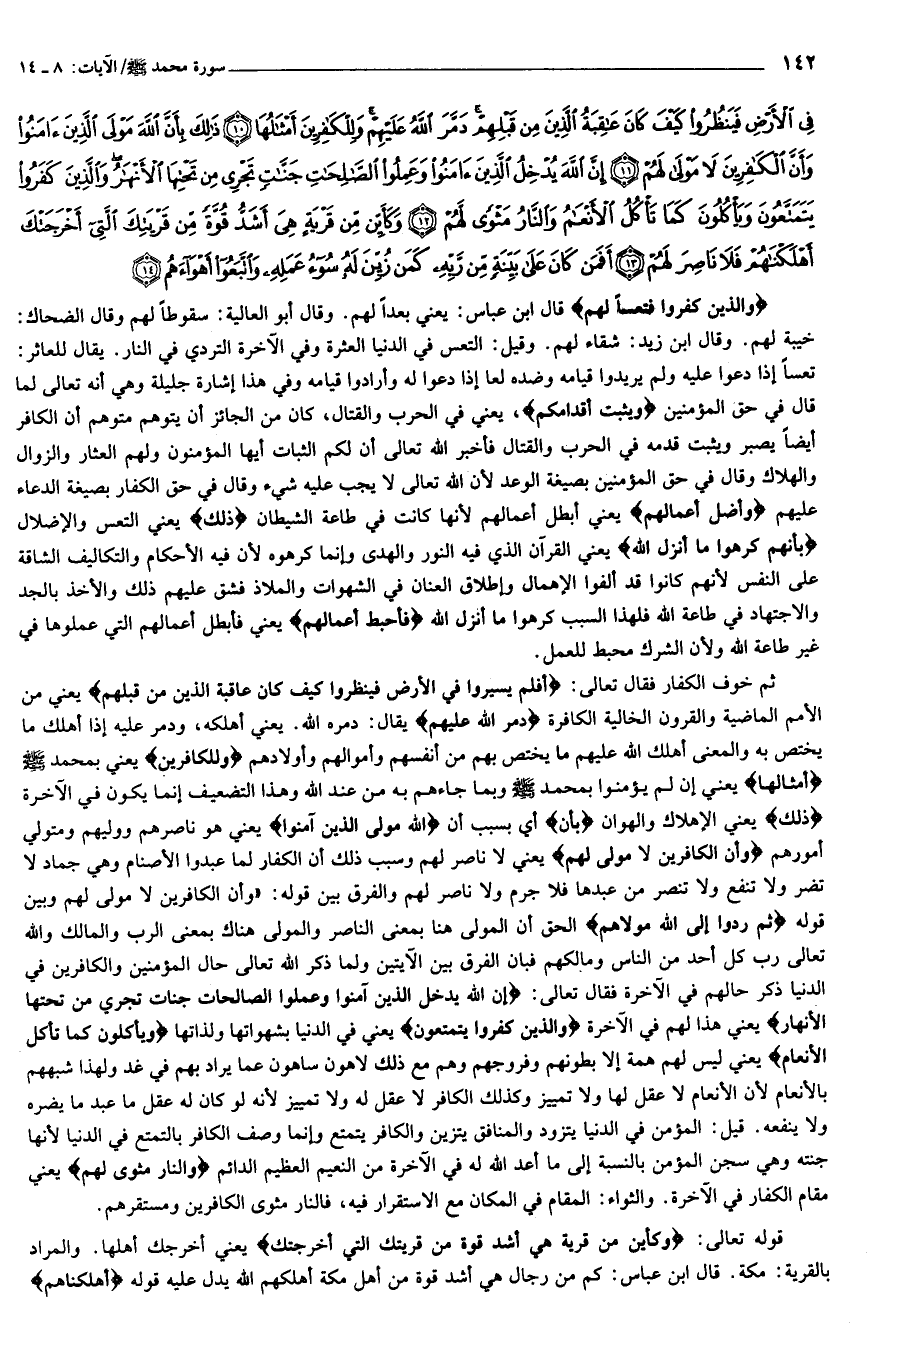 ١٤٢ سورة محمد ﷺ/ الآيات: ٨ ـ ١٤
فِي ٱلْأَرْضِ فَيَنظُرُوا۟ كَيْفَ كَانَ عَٰقِبَةُ ٱلَّذِينَ مِن قَبْلِهِمْ ۚ دَمَّرَ ٱللَّهُ عَلَيْهِمْ ۖ وَلِلْكَٰفِرِينَ أَمْثَٰلُهَا ﴿١٠﴾ ذَٰلِكَ بِأَنَّ ٱللَّهَ مَوْلَى ٱلَّذِينَ ءَامَنُوا۟
وَأَنَّ ٱلْكَٰفِرِينَ لَا مَوْلَىٰ لَهُمْ ﴿١١﴾ إِنَّ ٱللَّهَ يُدْخِلُ ٱلَّذِينَ ءَامَنُوا۟ وَعَمِلُوا۟ ٱلصَّٰلِحَٰتِ جَنَّٰتٍ تَجْرِي مِن تَحْتِهَا ٱلْأَنْهَٰرُ ۖ وَٱلَّذِينَ كَفَرُوا۟
يَتَمَتَّعُونَ وَيَأْكُلُونَ كَمَا تَأْكُلُ ٱلْأَنْعَٰمُ وَٱلنَّارُ مَثْوًى لَّهُمْ ﴿١٢﴾ وَكَأَيِّن مِّن قَرْيَةٍ هِيَ أَشَدُّ قُوَّةً مِّن قَرْيَتِكَ ٱلَّتِي أَخْرَجَتْكَ
أَهْلَكْنَٰهُمْ فَلَا نَاصِرَ لَهُمْ ﴿١٣﴾ أَفَمَن كَانَ عَلَىٰ بَيِّنَةٍ مِّن رَّبِّهِۦ كَمَن زُيِّنَ لَهُۥ سُوٓءُ عَمَلِهِۦ وَٱتَّبَعُوٓا۟ أَهْوَآءَهُم ﴿١٤﴾
﴿والذين كفروا فتعساً لهم﴾ قال ابن عباس: يعني بعداً لهم. وقال أبو العالية: سقوطاً لهم وقال الضحاك:
خيبة لهم. وقال ابن زيد: شقاء لهم. وقيل: التعس في الدنيا العثرة وفي الآخرة التردي في النار. يقال للعاثر:
تعساً إذا دعوا عليه ولم يريدوا قيامه وضده لعا إذا دعوا له وأرادوا قيامه وفي هذا إشارة جليلة وهي أنه تعالى لما
قال في حق المؤمنين ﴿ويثبت أقدامكم﴾، يعني في الحرب والقتال، كان من الجائز أن يتوهم متوهم أن الكافر
أيضاً يصبر ويثبت قدمه في الحرب والقتال فأخبر الله تعالى أن لكم الثبات أيها المؤمنون ولهم العثار والزوال
والهلاك وقال في حق المؤمنين بصيغة الوعد لأن الله تعالى لا يجب عليه شيء وقال في حق الكفار بصيغة الدعاء
عليهم ﴿وأضل أعمالهم﴾ يعني أبطل أعمالهم لأنها كانت في طاعة الشيطان ﴿ذلك﴾ يعني التعس والإضلال
﴿بأنهم كرهوا ما أنزل الله﴾ يعني القرآن الذي فيه النور والهدى وإنما كرهوه لأن فيه الأحكام والتكاليف الشاقة
على النفس لأنهم كانوا قد ألفوا الإهمال وإطلاق العنان في الشهوات والملاذ فشق عليهم ذلك والأخذ بالجد
والاجتهاد في طاعة الله فلهذا السبب كرهوا ما أنزل الله ﴿فأحبط أعمالهم﴾ يعني فأبطل أعمالهم التي عملوها في
غير طاعة الله ولأن الشرك محبط للعمل.
ثم خوف الكفار فقال تعالى: ﴿أفلم يسيروا في الأرض فينظروا كيف كان عاقبة الذين من قبلهم﴾ يعني من
الأمم الماضية والقرون الخالية الكافرة ﴿دمر الله عليهم﴾ يقال: دمره الله. يعني أهلكه، ودمر عليه إذا أهلك ما
يختص به والمعنى أهلك الله عليهم ما يختص بهم من أنفسهم وأموالهم وأولادهم ﴿وللكافرين﴾ يعني بمحمد ﷺ
﴿أمثالها﴾ يعني إن لم يؤمنوا بمحمد ﷺ وبما جاءهم به من عند الله وهذا التضعيف إنما يكون في الآخرة
﴿ذلك﴾ يعني الإهلاك والهوان ﴿بأن﴾ أي بسبب أن ﴿الله مولى الذين آمنوا﴾ يعني هو ناصرهم ووليهم ومتولي
أمورهم ﴿وأن الكافرين لا مولى لهم﴾ يعني لا ناصر لهم وسبب ذلك أن الكفار لما عبدوا الأصنام وهي جماد لا
تضر ولا تنفع ولا تنصر من عبدها فلا جرم ولا ناصر لهم والفرق بين قوله: «وأن الكافرين لا مولى لهم وبين
قوله ﴿ثم ردوا إلى الله مولاهم﴾ الحق أن المولى هنا بمعنى الناصر والمولى هناك بمعنى الرب والمالك والله
تعالى رب كل أحد من الناس ومالكهم فبان الفرق بين الآيتين ولما ذكر الله تعالى حال المؤمنين والكافرين في
الدنيا ذكر حالهم في الآخرة فقال تعالى: ﴿إن الله يدخل الذين آمنوا وعملوا الصالحات جنات تجري من تحتها
الأنهار﴾ يعني هذا لهم في الآخرة ﴿والذين كفروا يتمتعون﴾ يعني في الدنيا بشهواتها ولذاتها ﴿ويأكلون كما تأكل
الأنعام﴾ يعني ليس لهم همة إلا بطونهم وفروجهم وهم مع ذلك لاهون ساهون عما يراد بهم في غد ولهذا شبههم
بالأنعام لأن الأنعام لا عقل لها ولا تمييز وكذلك الكافر لا عقل له ولا تمييز لأنه لو كان له عقل ما عبد ما يضره
ولا ينفعه. قيل: المؤمن في الدنيا يتزود والمنافق يتزين والكافر يتمتع وإنما وصف الكافر بالتمتع في الدنيا لأنها
جنته وهي سجن المؤمن بالنسبة إلى ما أعد الله له في الآخرة من النعيم العظيم الدائم ﴿والنار مثوى لهم﴾ يعني
مقام الكفار في الآخرة. والثواء: المقام في المكان مع الاستقرار فيه، فالنار مثوى الكافرين ومستقرهم.
قوله تعالى: ﴿وكأين من قرية هي أشد قوة من قريتك التي أخرجتك﴾ يعني أخرجك أهلها. والمراد
بالقرية: مكة. قال ابن عباس: كم من رجال هي أشد قوة من أهل مكة أهلكهم الله يدل عليه قوله ﴿أهلكناهم﴾